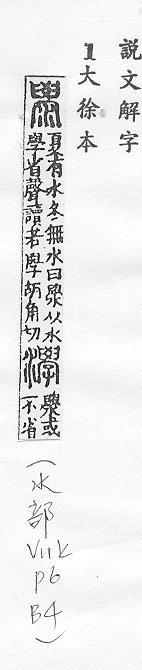 説文解字
1大徐本
澩
夏有水冬無水曰澩从水
學省聲讀若學胡角切
㶅
澩或
不省
(水部
V11k
p6
B4)